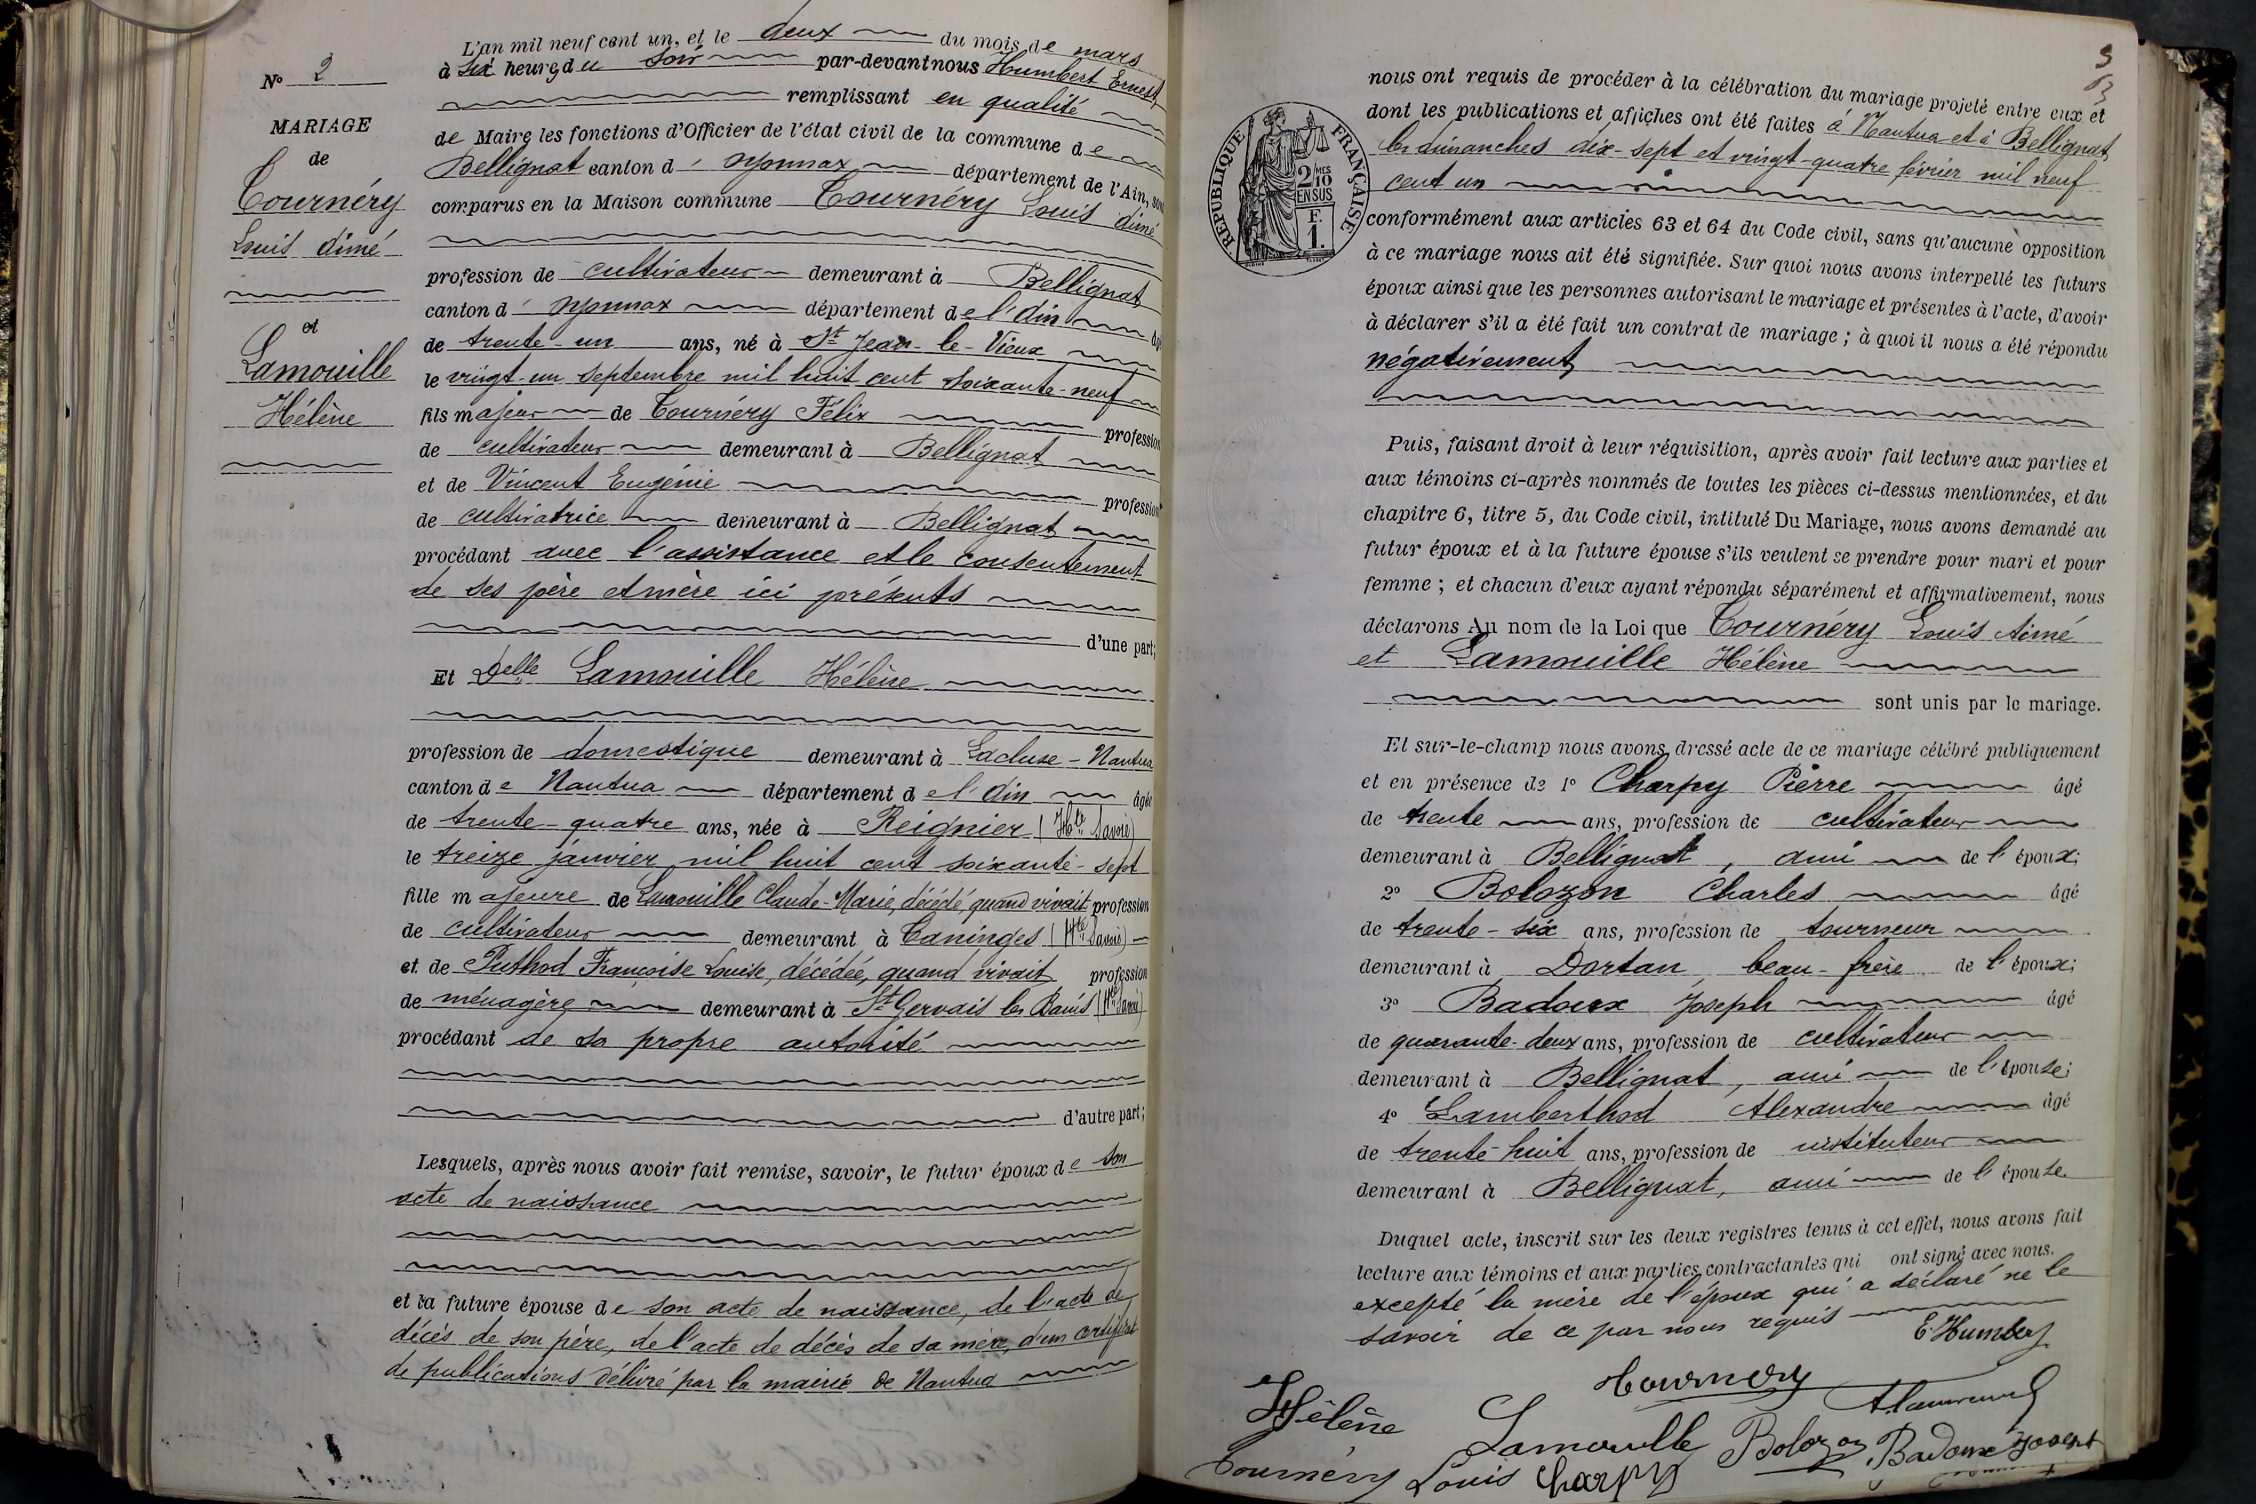 N° 2
MARIAGE
de
Tournéry
Louis Aimé
et
Lamouille
Hélène
L'an mil neuf cent un, et le deux du mois de mars
à six heures du soir par-devant nous Humbert Ernest
remplissant en qualité
de Maire les fonctions d'Officier de l'état civil de la commune de
Bellignat canton d'Oyonnax département de l'Ain, sont
comparus en la Maison commune Tournéry Louis Aimé
profession de cultivateur demeurant à Bellignat
canton d'Oyonnax département de l'Ain âgé
de trente-un ans, né à St Jean-le-Vieux
le vingt-un septembre mil huit cent soixante-neuf
fils majeur de Tournéry Félix profession
de cultivateur demeurant à Bellignat
et de Vincent Eugénie profession
de cultivatrice demeurant à Bellignat
procédant avec l'assistance et le consentement
de ses père et mère ici présents
d'une part;
Et Delle Lamouille Hélène
profession de domestique demeurant à Lacluse-Nantua
canton de Nantua département de l'Ain âgée
de trente-quatre ans, née à Reignier (Hte Savoie)
le treize janvier mil huit cent soixante-sept
fille majeure de Lamouille Claude-Marie, décédé, quand vivait profession
de cultivateur demeurant à Taninges (Hte Savoie)
et de Puthod Françoise Louise, décédée, quand vivait profession
de ménagère demeurant à St Gervais les Bains (Hte Savoie)
procédant de sa propre autorité
d'autre part;
Lesquels, après nous avoir fait remise, savoir, le futur époux de son
acte de naissance
et la future épouse de son acte de naissance, de l'acte de
décès de son père, de l'acte de décès de sa mère, d'un certificat
de publications délivré par la mairie de Nantua
3
RÉPUBLIQUE FRANÇAISE
2 MES
10
EN SUS
F.
1.
nous ont requis de procéder à la célébration du mariage projeté entre eux et
dont les publications et affiches ont été faites à Nantua et à Bellignat
les dimanches dix-sept et vingt-quatre février mil neuf
cent un
conformément aux articles 63 et 64 du Code civil, sans qu'aucune opposition
à ce mariage nous ait été signifiée. Sur quoi nous avons interpellé les futurs
époux ainsi que les personnes autorisant le mariage et présentes à l'acte, d'avoir
à déclarer s'il a été fait un contrat de mariage; à quoi il nous a été répondu
négativement
Puis, faisant droit à leur réquisition, après avoir fait lecture aux parties et
aux témoins ci-après nommés de toutes les pièces ci-dessus mentionnées, et du
chapitre 6, titre 5, du Code civil, intitulé Du Mariage, nous avons demandé au
futur époux et à la future épouse s'ils veulent se prendre pour mari et pour
femme; et chacun d'eux ayant répondu séparément et affirmativement, nous
déclarons Au nom de la Loi que Tournéry Louis Aimé
et Lamouille Hélène
sont unis par le mariage.
Et sur-le-champ nous avons dressé acte de ce mariage célébré publiquement
et en présence de 1° Charpy Pierre âgé
de trente ans, profession de cultivateur
demeurant à Bellignat, ami de l'époux;
2° Bolozon Charles âgé
de trente-six ans, profession de tourneur
demeurant à Dortan beau-frère de l'époux;
3° Badoux Joseph âgé
de quarante-deux ans, profession de cultivateur
demeurant à Bellignat, ami de l'épouse;
4° Lamberthod Alexandre âgé
de trente-huit ans, profession de instituteur
demeurant à Bellignat, ami de l'épouse
Duquel acte, inscrit sur les deux registres tenus à cet effet, nous avons fait
lecture aux témoins et aux parties contractantes qui ont signé avec nous.
excepté la mère de l'époux qui a déclaré ne le
savoir de ce par nous requis
E. Humbert
Tournéry
Hélène Lamouille Bolozon Badoux Joseph
Tournéry Louis Charpy